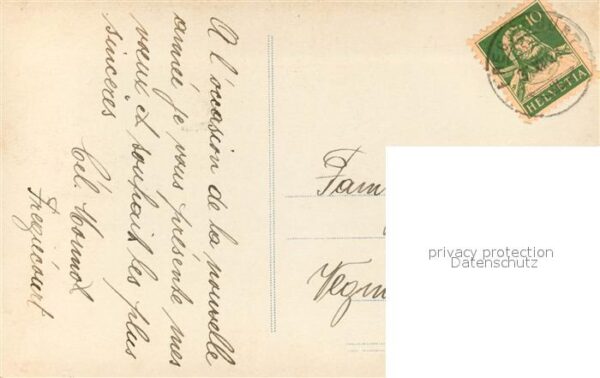 A l'occasion de la nouvelle
année je vous présente mes
vœux et souhaits les plus
sincères
Cél.
Fregiécourt
10
HELVETIA
Fam
privacy protection
Datenschutz